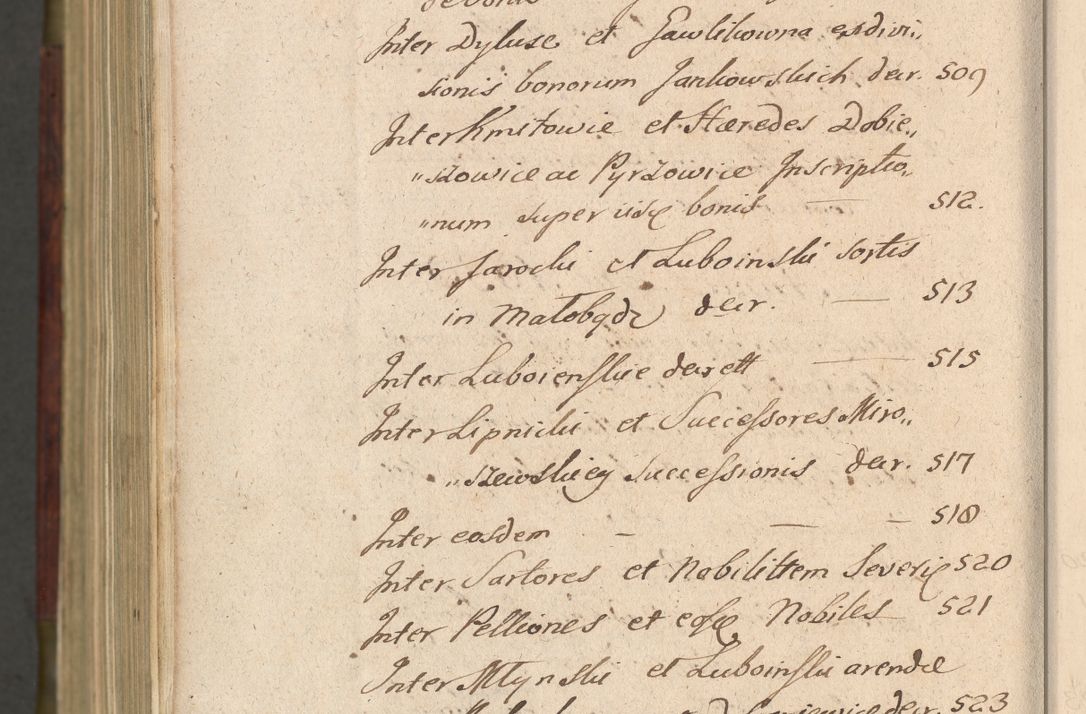 Inter Dyluse et Gawlikowna exdivi„
sionis bonorum Jankowskich decr. 509
Inter Kmitowie et Hæredes Dobie„
„szowice ac Pyrzowice Inscriptio„
„num super iisq bonis — 512.
Inter Jarocki et Luboinski sortis
in Małobądz decr. — 513
Inter Luboienskie decrett — 515
Inter Lipnicki et Successores Miro„
„szewskiey successionis decr. 517
Inter eosdem — — — 518
Inter Sartores et Nobilittem Severiæ 520
Inter Pelliones et eosq Nobiles 521
Inter Młynski et Luboinski arendæ
decr. 523